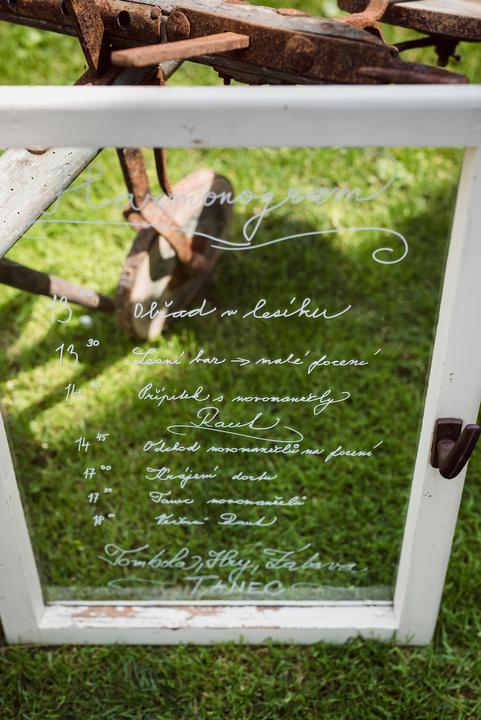 Harmonogram
13 Obřad v lesíku
13 30 Lesní bar → malé focení
14 00 Přípitek s novomanžely
Raut
14 45 Odchod novomanželů na focení
17 00 Krájení dortu
17 30 Tanec novomanželů
18 00 Večerní Raut
Tombola, Hry, Zábava
TANEC